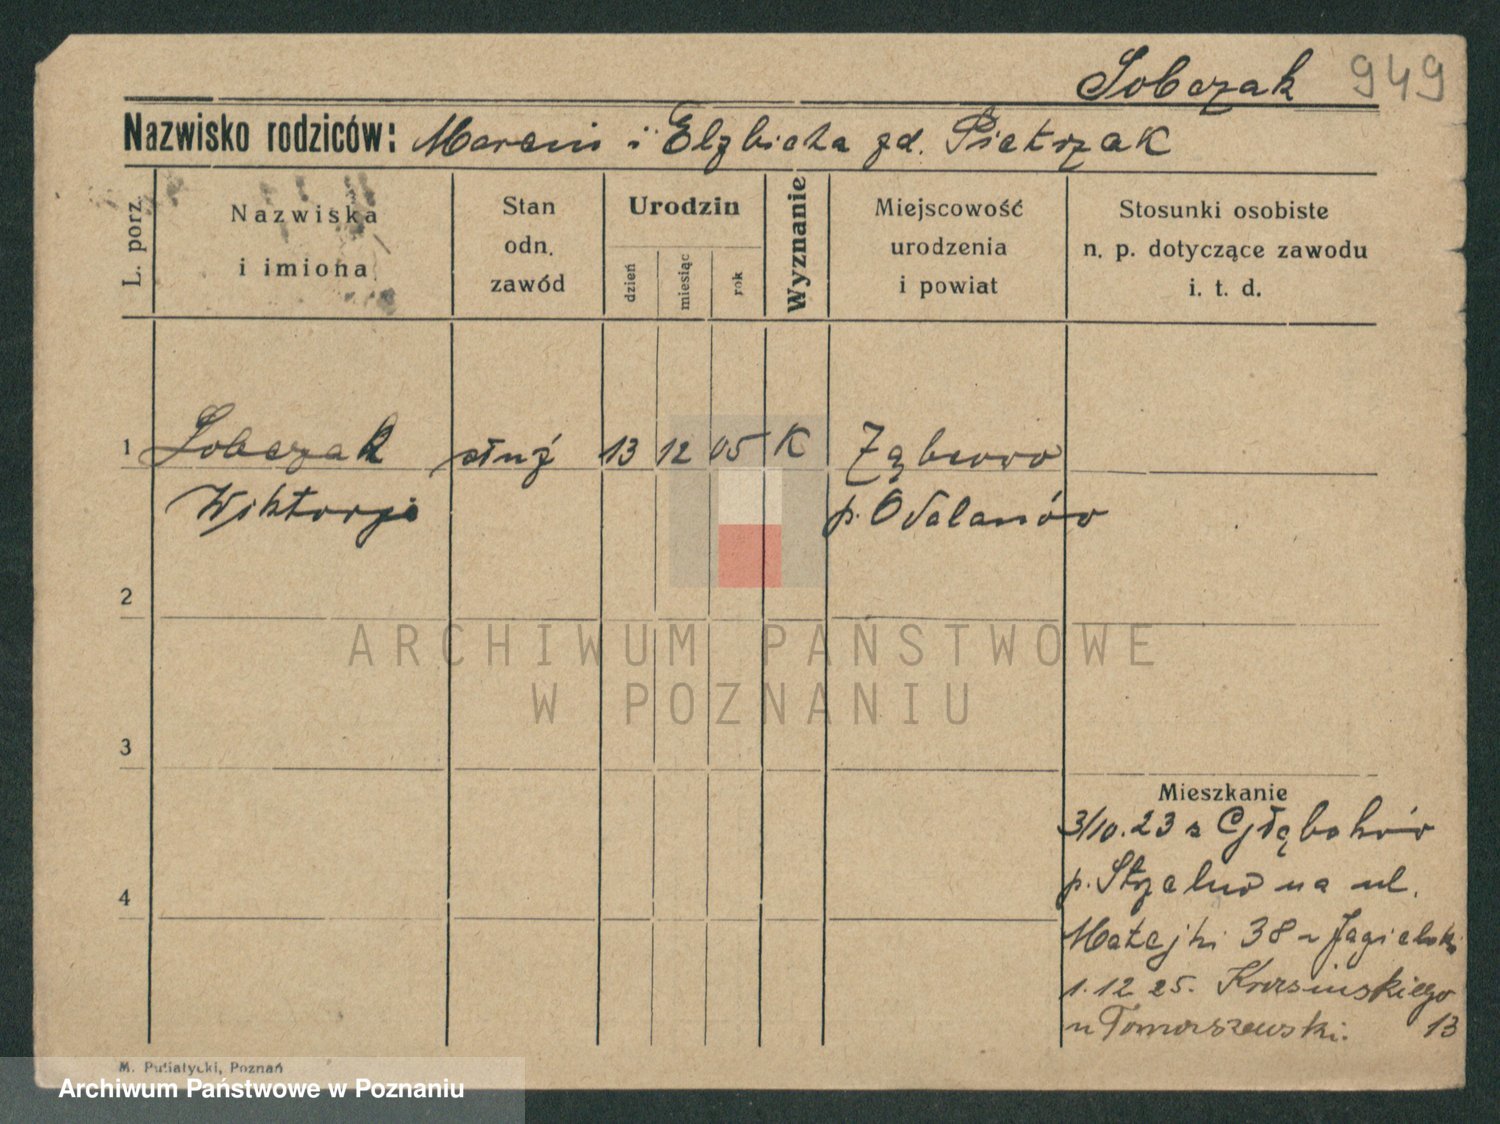 Sobczak 949
Nazwisko rodziców: Marcin i Elżbieta zd. Pietrzak
L. porz.
Nazwiska
i imiona
Stan
odn.
zawód
Urodzin
dzień
miesiąc
rok
Wyznanie
Miejscowość
urodzenia
i powiat
Stosunki osobiste
n. p. dotyczące zawodu
i. t. d.
1 Sobczak służ 13 12 05 K Ząbcowo
Wiktorja p. Odolanów
2
ARCHIWUM PAŃSTWOWE
W POZNANIU
3
Mieszkanie
3/10.23 z
p. Strzelno na ul.
4
Matejki 38 u Jagielski
1.12 25.
u Tomaszewski. 13
M. Putiatycki, Poznań
Archiwum Państwowe w Poznaniu